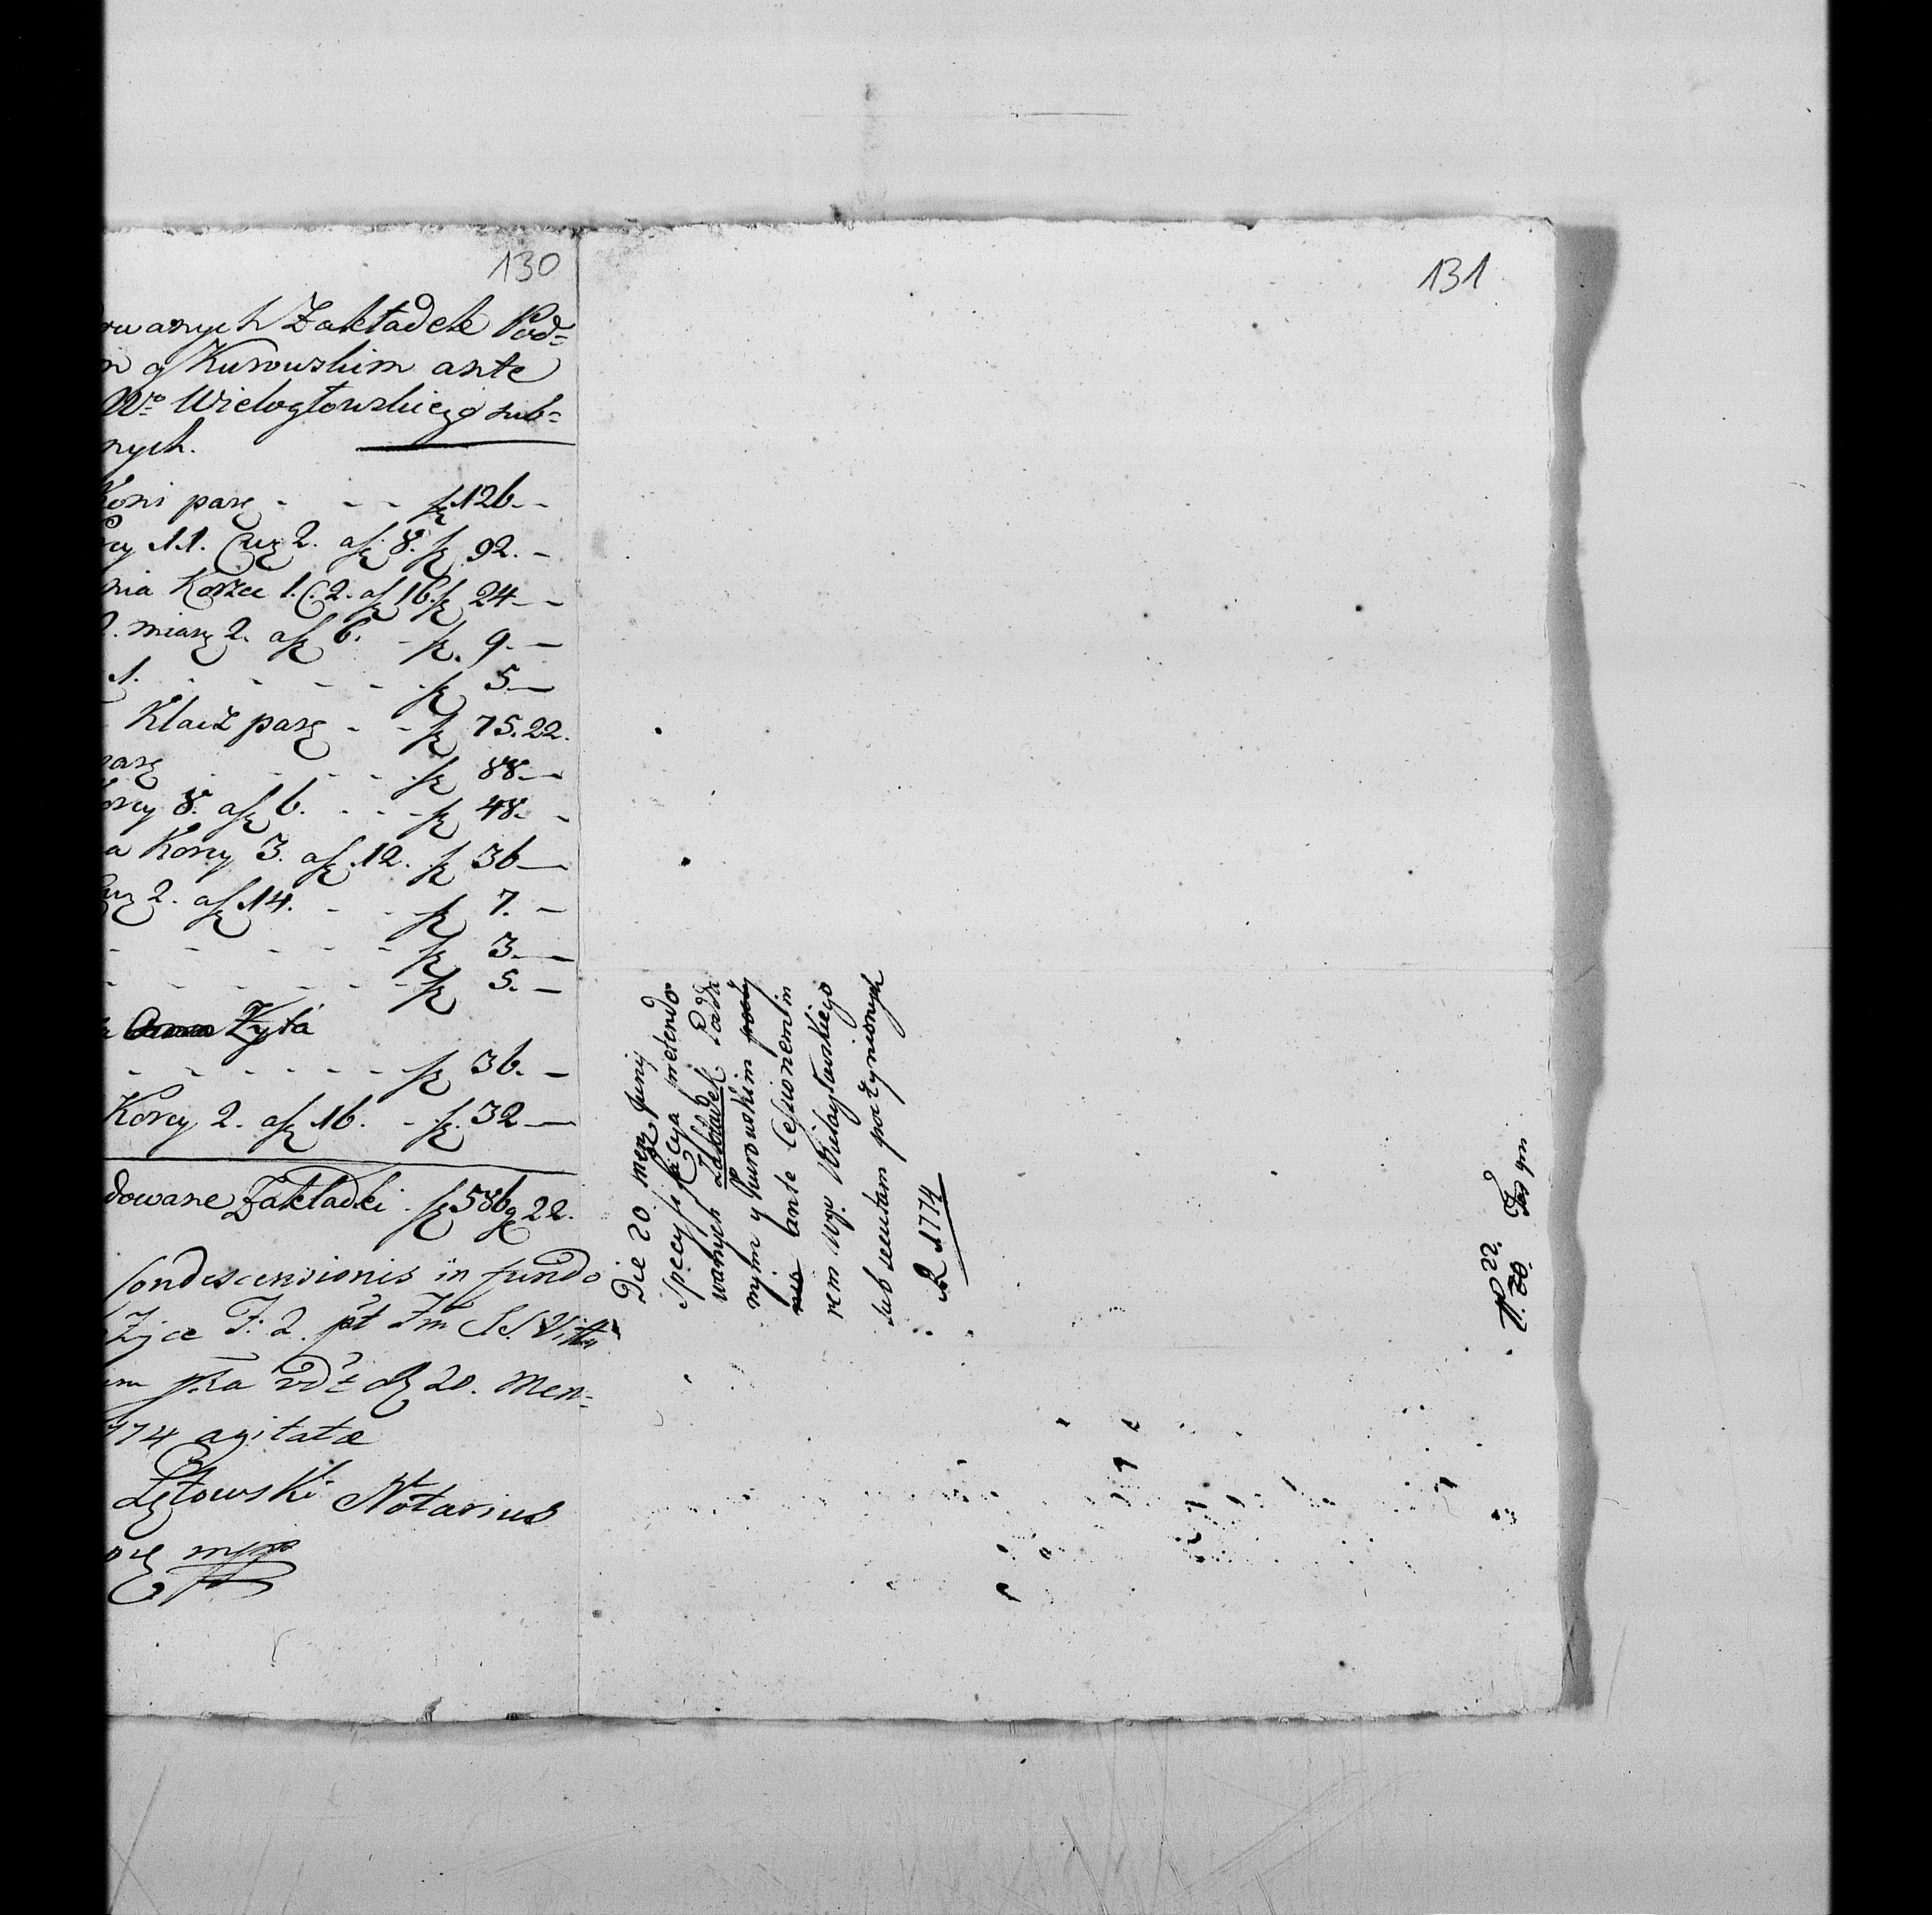 130
wanych Zakładek Pod=
y Kurowskim ante
Wo Wielogłowskiego sub=
nych.
Koni parę - - - fl 126 -
11. Cwi 2. a fl 8. fl 92. -
nia Korzec 1. C. 2. a fl 16. fl 24 -
2. miarę 2. a fl 6. - fl. 9. -
1. - - - - fl 5 -
Klacz parę - - fl 75. 22.
parę - - - - fl 88 -
8. a fl 6. - - - fl 48. -
a Korcy 3. a fl. 12. fl 36 -
2. a fl 14. - - fl 7. -
- - - - - fl 3 -
- - - - - fl 5. -
Żyta
- - - - - - fl 36. -
Korcy 2. a fl 16. - fl. 32 -
dowane Zakładki. fl 586 g 22.
Condescensionis in fundo
F. 2.
20. Men-
774 agitatæ
Łętowski Notarius
mpp
131
Die 20 mens Junij
specyfikacya pretendo
wanych Zakładek Podda
nym y Kurowskim
ante Cessionem
rem Wielogłowskiego
sub secutam poczynionych
A 1774
N. 22.
20.